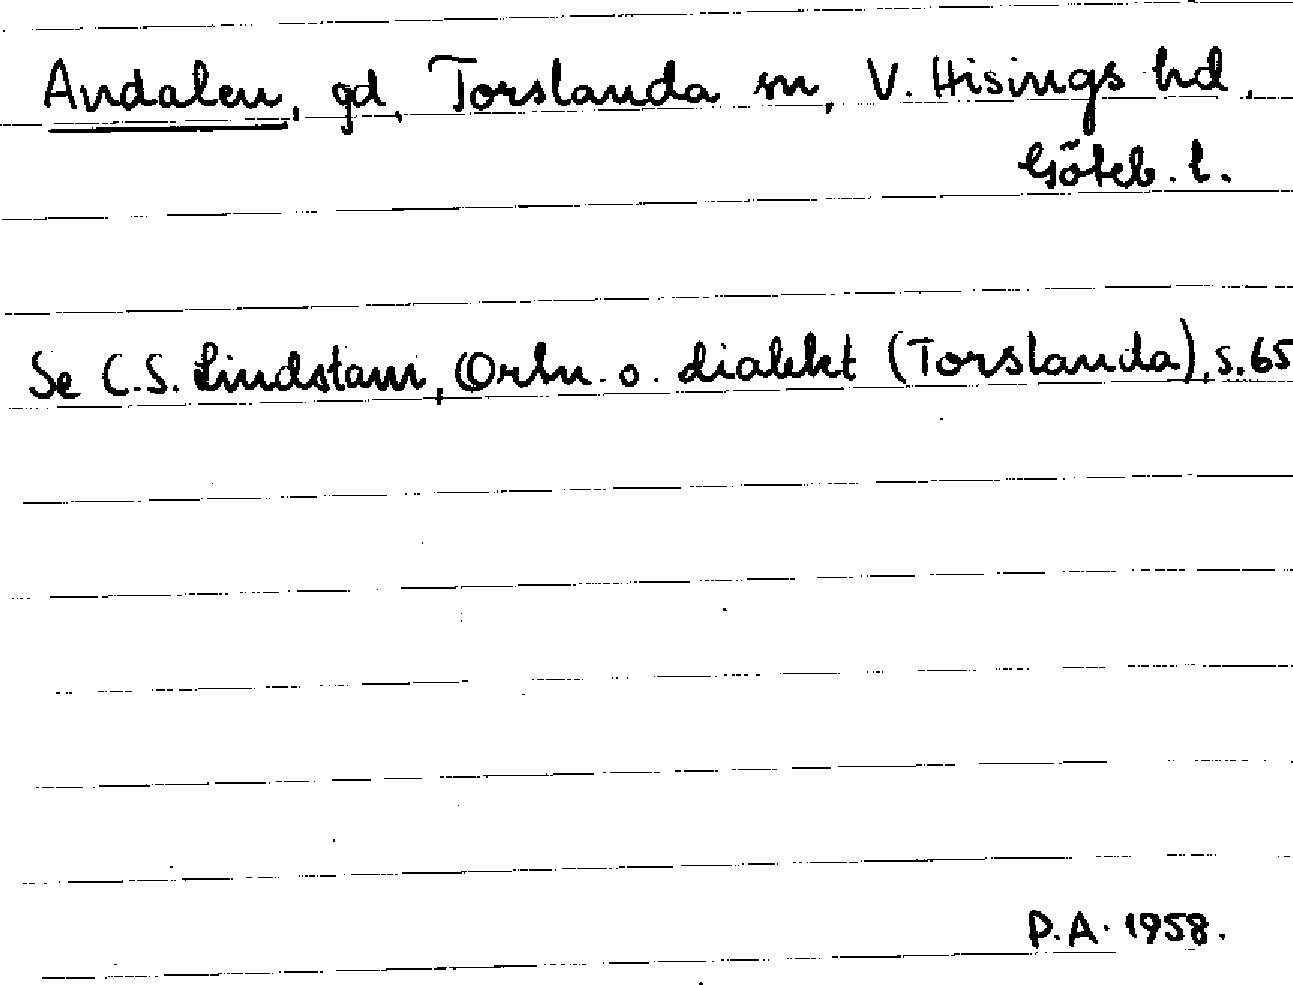 Andalen, gd, Torslanda sn, V. Hisings hd.
Göteb. l.
Se C.S. Lindstam, Ortn. o. dialekt (Torslanda), s. 65
P.A. 1958.